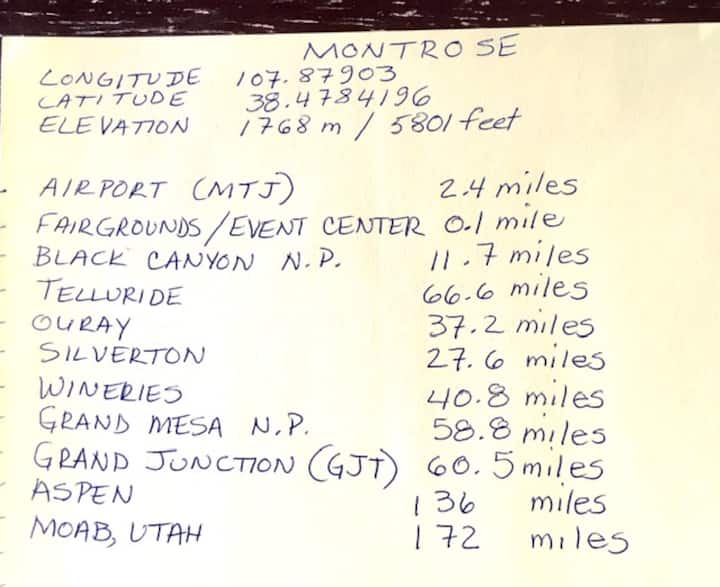 MONTROSE
LONGITUDE 107.87903
LATITUDE 38.4784196
ELEVATION 1768 m / 5801 feet
AIRPORT (MTJ) 2.4 miles
FAIRGROUNDS/EVENT CENTER 0.1 mile
BLACK CANYON N.P. 11.7 miles
TELLURIDE 66.6 miles
OURAY 37.2 miles
SILVERTON 27.6 miles
WINERIES 40.8 miles
GRAND MESA N.P. 58.8 miles
GRAND JUNCTION (GJT) 60.5 miles
ASPEN 136 miles
MOAB, UTAH 172 miles